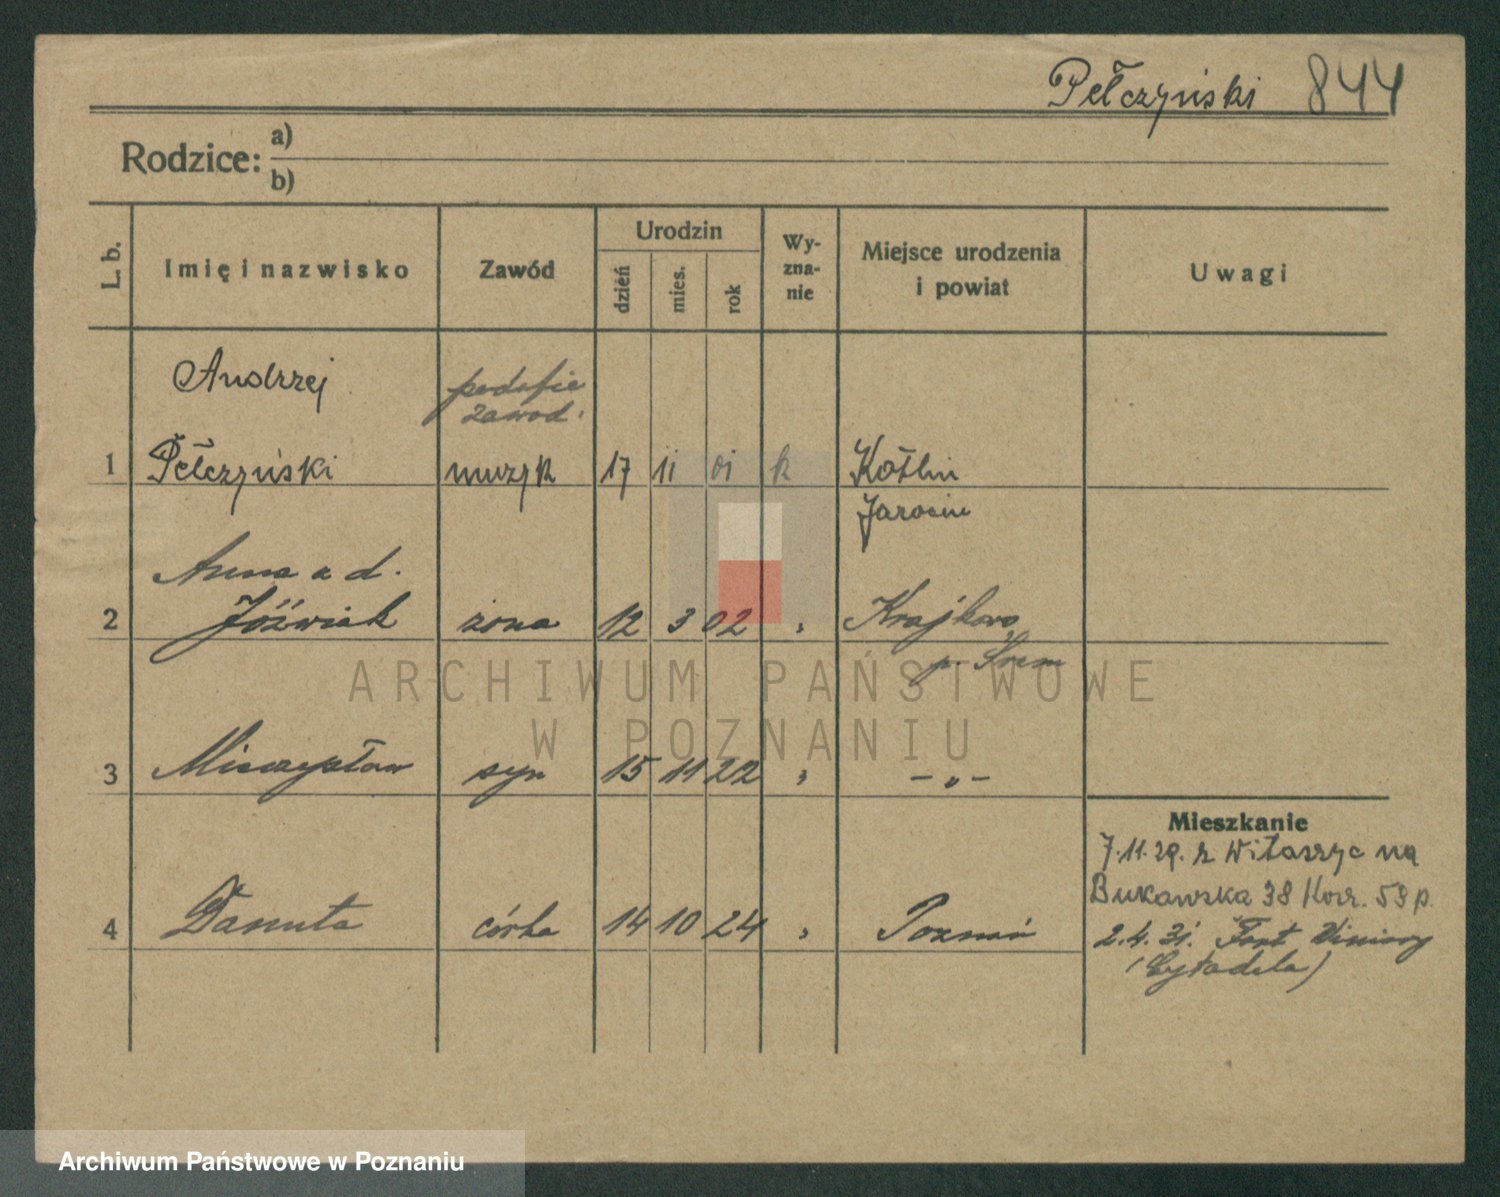 Pełczyński 844
Rodzice: a)
b)
L. b.
Imię i nazwisko
Zawód
Urodzin
dzień
mies.
rok
Wy-
zna-
nie
Miejsce urodzenia
i powiat
Uwagi
Andrzej podofic
zawod.
1 Pełczyński muzyk 17 11 01 k Kotlin
Jarocin
Anna u d.
2 Jóźwiak żona 12 3 02 " Krajkowo
p. Śrem
ARCHIWUM PAŃSTWOWE
W POZNANIU
3 Mieczysław syn 15 11 22 " – " –
Mieszkanie
7.11.29. z Witaszyc na
Bukowska 38 Kosz. 53 p.
4 Danuta córka 14 10 24 " Poznań 2.4.31. Fort Winiary
(Cytadela)
Archiwum Państwowe w Poznaniu